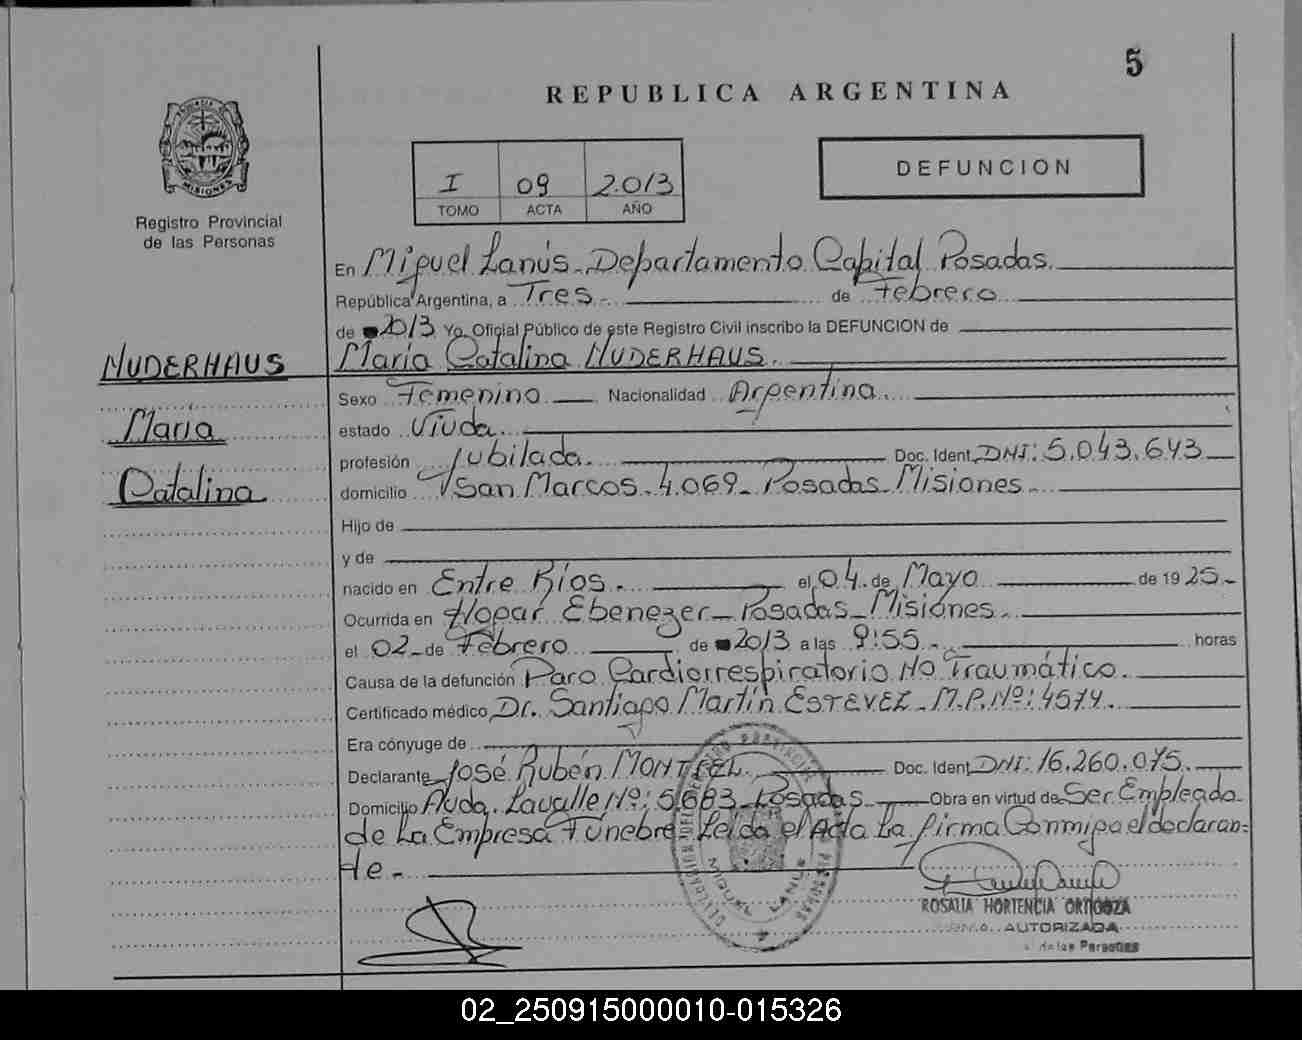 5
REPUBLICA ARGENTINA
MISIONES
Registro Provincial
de las Personas
I 09 2.013
TOMO ACTA AÑO
DEFUNCION
En Miguel Lanús - Departamento Capital Posadas.
República Argentina, a Tres - de Febrero
de 2013 Yo, Oficial Público de este Registro Civil inscribo la DEFUNCION de
María Catalina NUDERHAUS.
NUDERHAUS
María
Catalina
Sexo Femenino Nacionalidad Argentina.
estado Viuda.
profesión Jubilada. Doc. Ident. DNI: 5.043.643
domicilio San Marcos - 4.069 - Posadas - Misiones.
Hijo de
y de
nacido en Entre Ríos. el 04 de Mayo de 1925.-
Ocurrida en Hogar Ebenezer - Posadas - Misiones.
el 02 - de Febrero de 2013 a las 9:55 - horas
Causa de la defunción Paro Cardiorrespiratorio No Traumático.
Certificado médico Dr. Santiago Martín ESTEVEZ - M.P. Nº: 4574.
Era cónyuge de
Declarante José Rubén Doc. Ident. DNI: 16.260.075.
Domicilio Avda. Lavalle Nº: 5683 - Posadas Obra en virtud de Ser Empleado
de La Empresa Fúnebre. Leída el Acta La firma Conmigo el declaran=
te.-
MIGUEL LANUS
ROSALIA HORTENCIA
AUTORIZADA
de las Personas
02_250915000010-015326